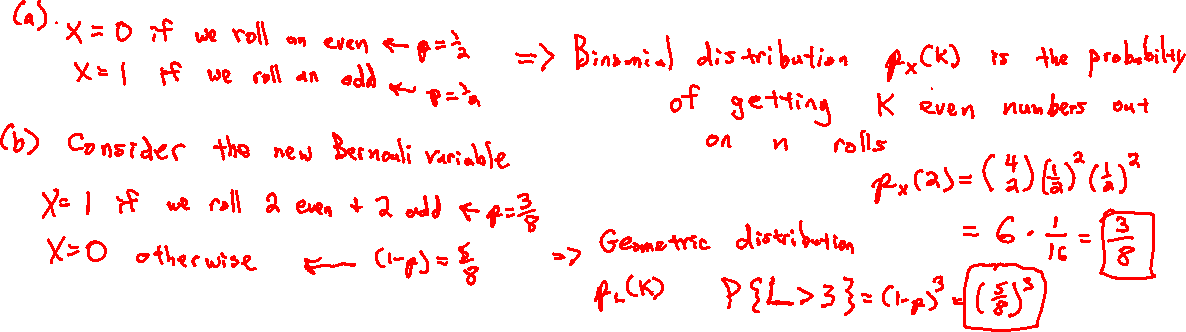 (a). X = 0 if we roll an even ← p = 1/2
X = 1 if we roll an odd ← p = 1/2
=> Binomial distribution p_X(K) is the probability
of getting K even numbers out
on n rolls
p_X(2) = (4 2) (1/2)^2 (1/2)^2
= 6 · 1/16 = 3/8
(b) Consider the new Bernouli variable
X = 1 if we roll 2 even + 2 odd ← p = 3/8
X = 0 otherwise ← (1-p) = 5/8
=> Geometric distribution
p_L(K) P{L > 3} = (1-p)^3 = (5/8)^3